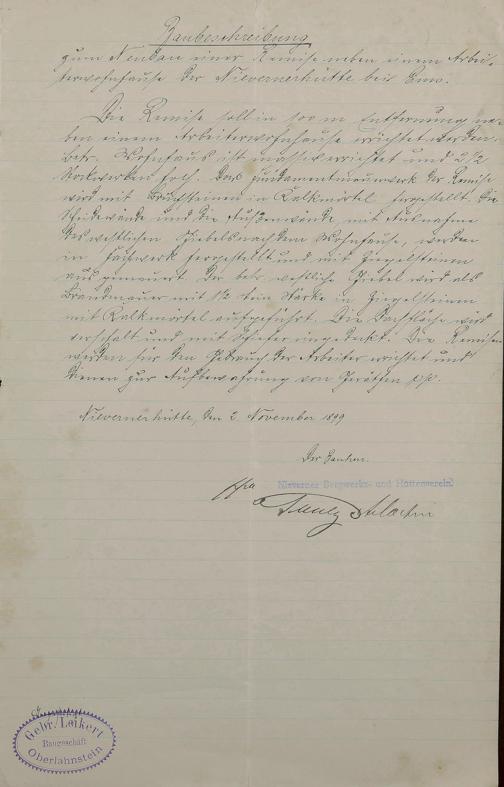 Baubeschreibung
zum Neubau einer Remise neben einem Arbei-
terwohnhause der Nievernerhütte bei Ems.
Die Remise soll in 100 m Entfernung ne-
ben einem Arbeiterwohnhause errichtet werden.
Betr. Wohnhaus ist massiv errichtet und 2 1/2
Stockwerke hoch. Das Fundamentmauerwerk der Remise
wird mit Bruchsteinen in Kalkmörtel hergestellt. Die
Scheidewände und die Außenwände, mit Ausnahme
des westlichen Giebels nach dem Wohnhause, werden
in Fachwerk hergestellt und mit Ziegelsteinen
ausgemauert. Der betr. westliche Giebel wird als
Brandmauer mit 1/2 Stein Stärke in Ziegelsteinen
mit Kalkmörtel aufgeführt. Die Dachfläche wird
verschalt und mit Schiefer eingedeckt. Die Remisen
werden für den Gebrauch der Arbeiter errichtet und
dienen zur Aufbewahrung von Geräthen pp.
Nievernerhütte, den 2. November 1899
Der Bauherr.
Nieverner Bergwerks- und Hüttenverein
ppa
Gebr. Leikert
Baugeschäft
Oberlahnstein